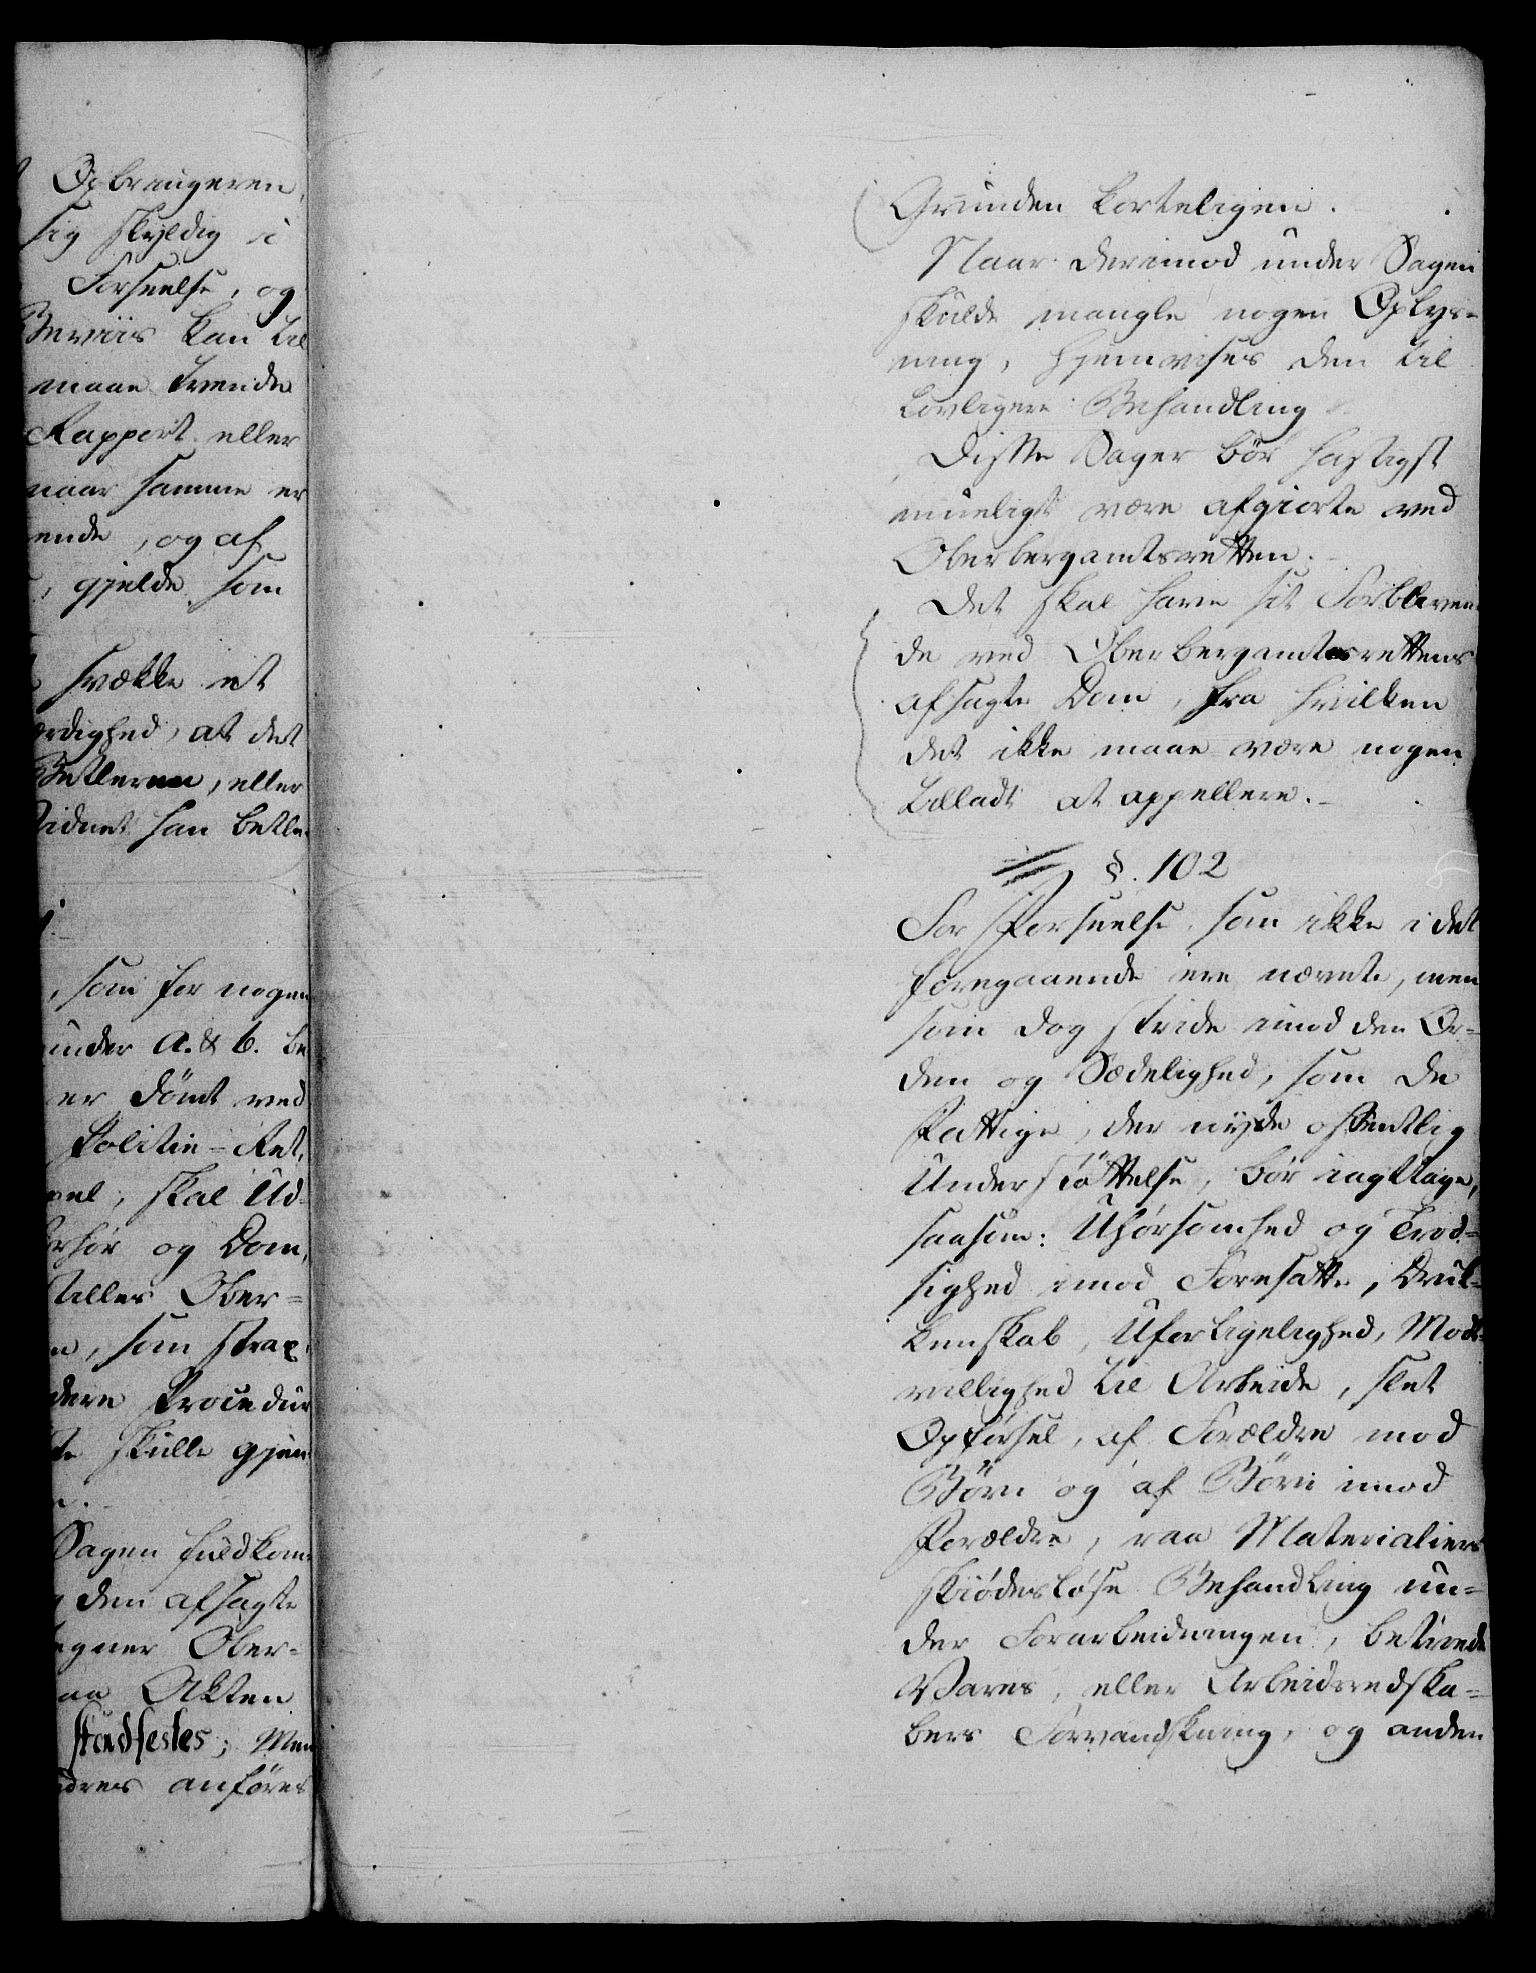 Opbringeren
sig skyldig i
Forseelse, og
Beviis kan til
maae trende
Rapport eller
naar samme er
ende, og af
, gjelde som
svække et
ærdighed, at det
Betleren, eller
han betle
, som for nogen
under A. & b. be
er dömt ved
Politie-Ret,
vel, skal Ud-
rhör og Dom,
stilles Ober=
, som strax
dere Procedur
skulle gjen
Sagen fuldkom
den afsagte
egner Ober-
aa Akten
stadfestes; Men
anföres
Grunden korteligen.
Naar derimod under Sagen
skulde mangle nogen Oplys-
ning, hjemvises den til
lovligere Behandling
Disse Sager bör hastigst
mueligst være afgiorte ved
Oberbergamtsretten.
Det skal have sit Forbliven-
de ved Oberbergamtsrettens
afsagte Dom, fra hvilken
det ikke maae være nogen
tilladt at appellere.
§. 102
For Forseelse, som ikke i det
foregaaende ere nævnte, men
som dog stride imod den Or=
den og Sædelighed, som de
Fattige, der nyde offentlig
Understöttelse, bör iagttage,
saasom: Uhörsomhed og Trod=
sighed imod Foresatte, Druk=
kenskab, Uforligelighed, Mod=
villighed til Arbeide, slet
Opförsel, af Forældre mod
Börn og af Börn imod
Forældre, raa Materialiers
skiödeslöse Behandling un=
der Forarbeidningen, betroede
Varers, eller Arbeidsredska=
bers Forvandskning, og anden